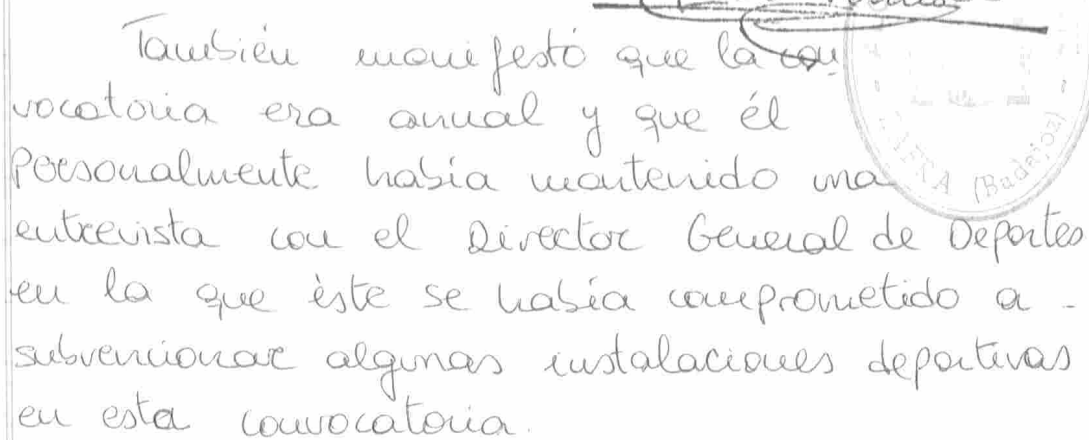 También manifestó que la con
vocatoria era anual y que él
Personalmente había mantenido una
entrevista con el Director General de Deportes
en la que èste se había comprometido a -
subvencionar algunas instalaciones deportivas
en esta convocatoria.
ZAFRA (Badajoz)